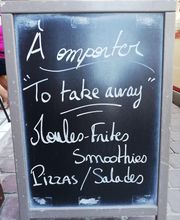 À emporter
"To take away"
Moules-Frites
Smoothies
Pizzas/Salades